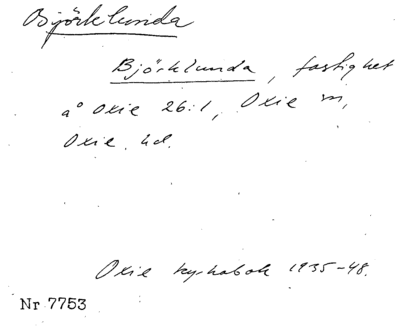 Björklunda
Björklunda, fastighet
å Oxie 26:1, Oxie sn,
Oxie hd.
Oxie kyrkobok 1935-48.
Nr 7753